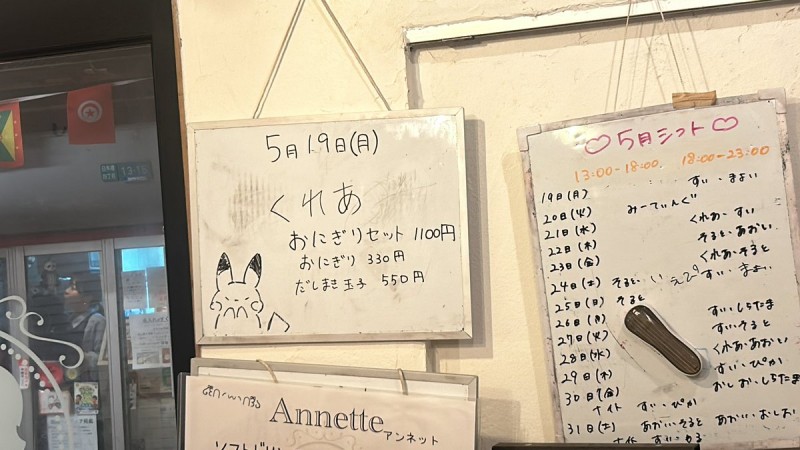 5月19日(月)
くれあ
おにぎりセット 1100円
おにぎり 330円
だしまき玉子 550円
Annette
アンネット
5月シフト
13:00-18:00 18:00-23:00
19日(月) すい・まよい
20日(火) みーてぃんぐ
21日(水) くれあ・すい
22日(木) そると・あおい
23日(金) くれあ・そると
24日(土) そると・すい・まよい
25日(日) そると
26日(月) すい・しらたま
27日(火) すい・そると
28日(水) くれあ・あおい
29日(木) すい・ぴか
30日(金) おしお・しらたま
ナイト すい・ぴか
31日(土) あおい・そると あおい・おしお
ナイト すい・
13-16